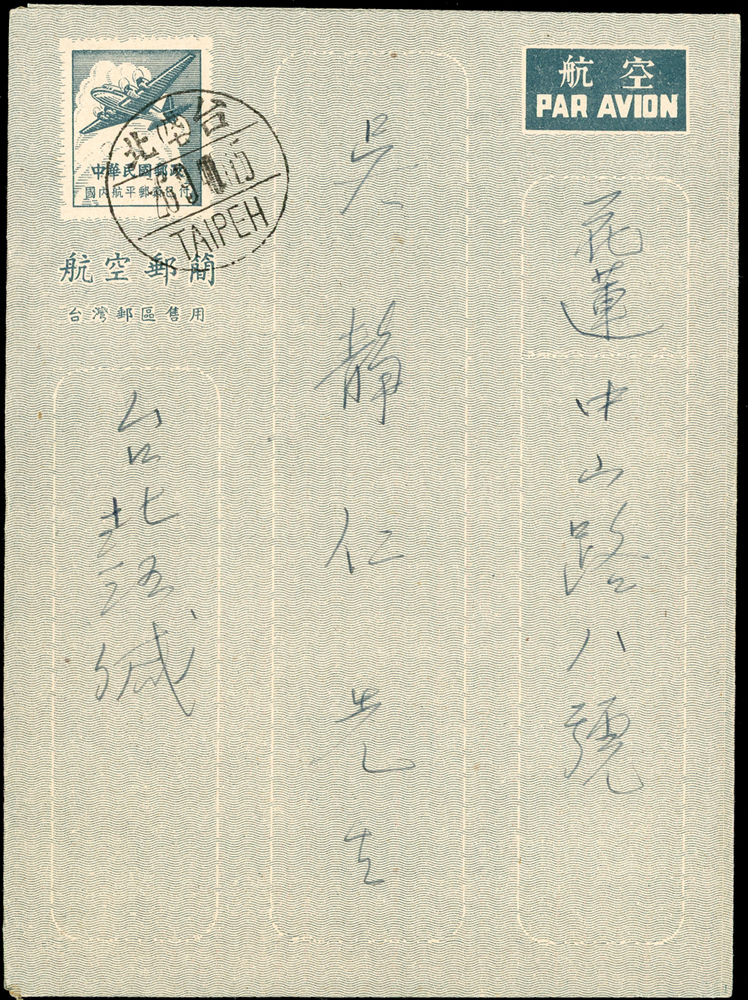 航空
PAR AVION
花蓮
中山路八號
吳靜仁先生
中華民國郵政
國內航平郵資已付
台北
TAIPEH
航空郵簡
台灣郵區售用
台北
緘